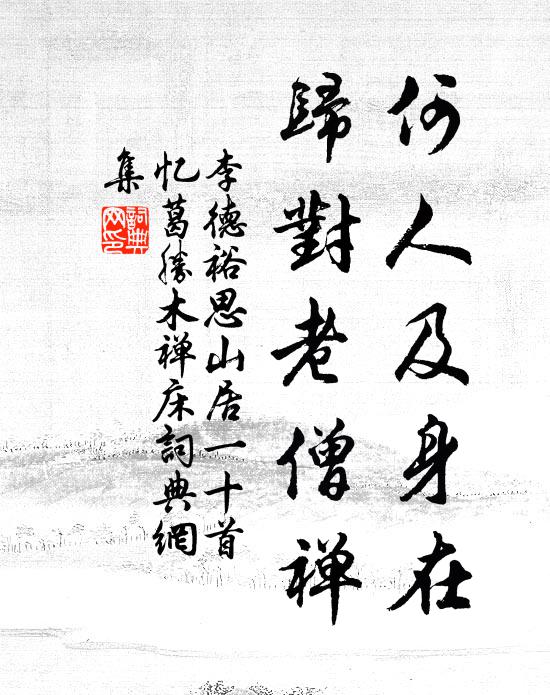 何人及身在
歸對老僧禅
李德裕思山居一十首
忆葛勝木禅床詞典網
集
詞典
网印